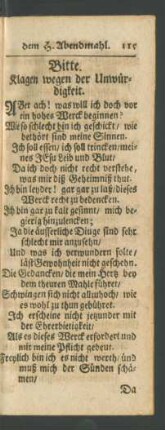 dem H. Abendmahl. 115
Bitte.
Klagen wegen der Unwür-
digkeit.
Aber ach! was will ich doch vor
ein hohes Werck beginnen?
Wie so schlecht bin ich geschickt/ wie
bethört sind meine Sinnen.
Ich soll essen/ ich soll trincken/ mei-
nes JEsu Leib und Blut/
Da ich doch nicht recht verstehe/
was mir diß Geheimniß thut.
Ich bin leyder! gar gar zu laß/ dieses
Werck recht zu bedencken.
Ich bin gar zu kalt gesinnt/ mich be-
gierig hinzulencken/
Ja die äusserliche Dinge sind sehr
schlecht mir anzusehn/
Und was ich verwundern solte/
läst Gewohnheit nicht geschehn.
Die Gedancken/ die mein Hertz bey
dem theuren Mahle führet/
Schwingen sich nicht allzuhoch/ wie
es wohl zu thun gebühret.
Ich erscheine nicht jetzunder mit
der Ehrerbietigkeit/
Als es dieses Werck erfordert und
mit meine Pflicht gebeut.
Freylich bin ich es nicht werth/ und
muß mich der Sünden schä-
men/
Da